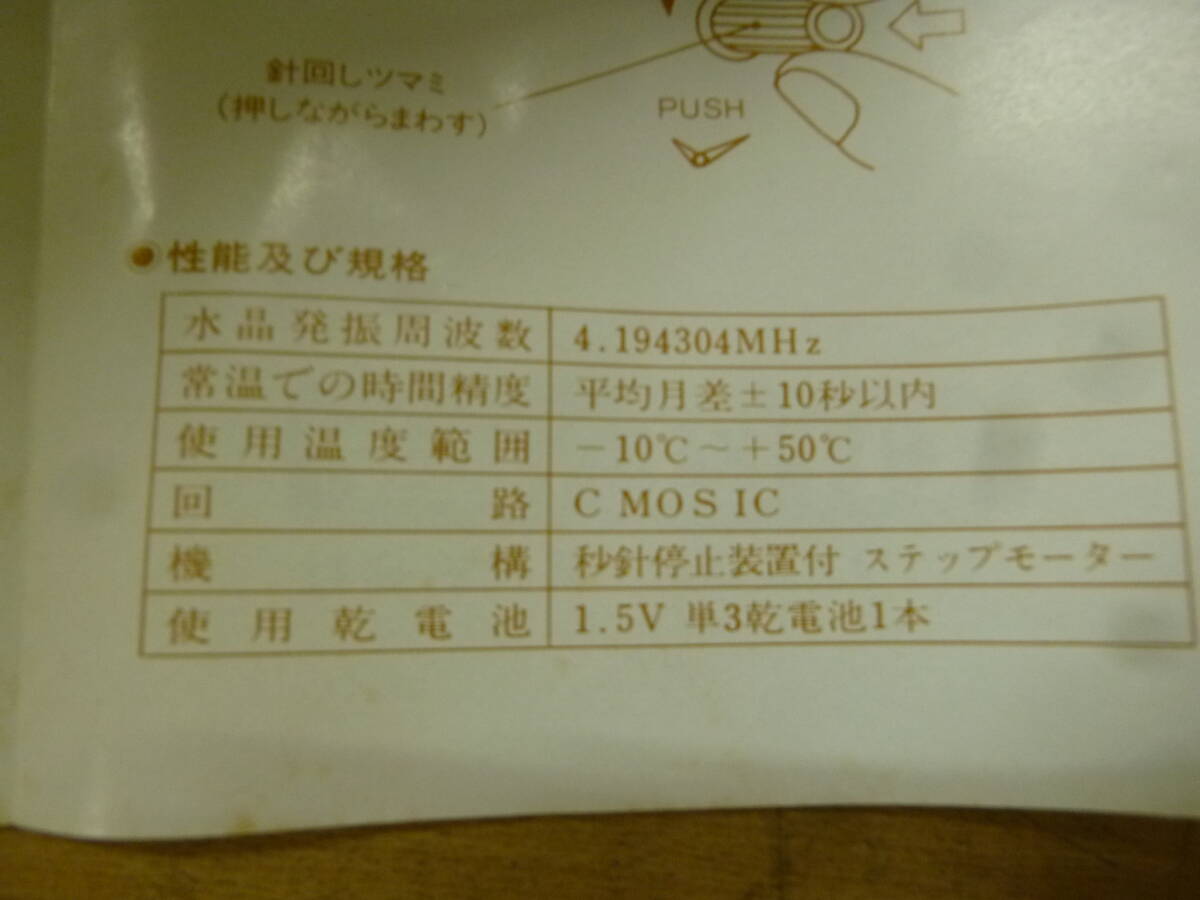 針回しツマミ
(押しながらまわす)
PUSH
●性能及び規格
水晶発振周波数 4.194304MHz
常温での時間精度 平均月差±10秒以内
使用温度範囲 −10℃〜+50℃
回路 C MOS IC
機構 秒針停止装置付 ステップモーター
使用乾電池 1.5V 単3乾電池1本